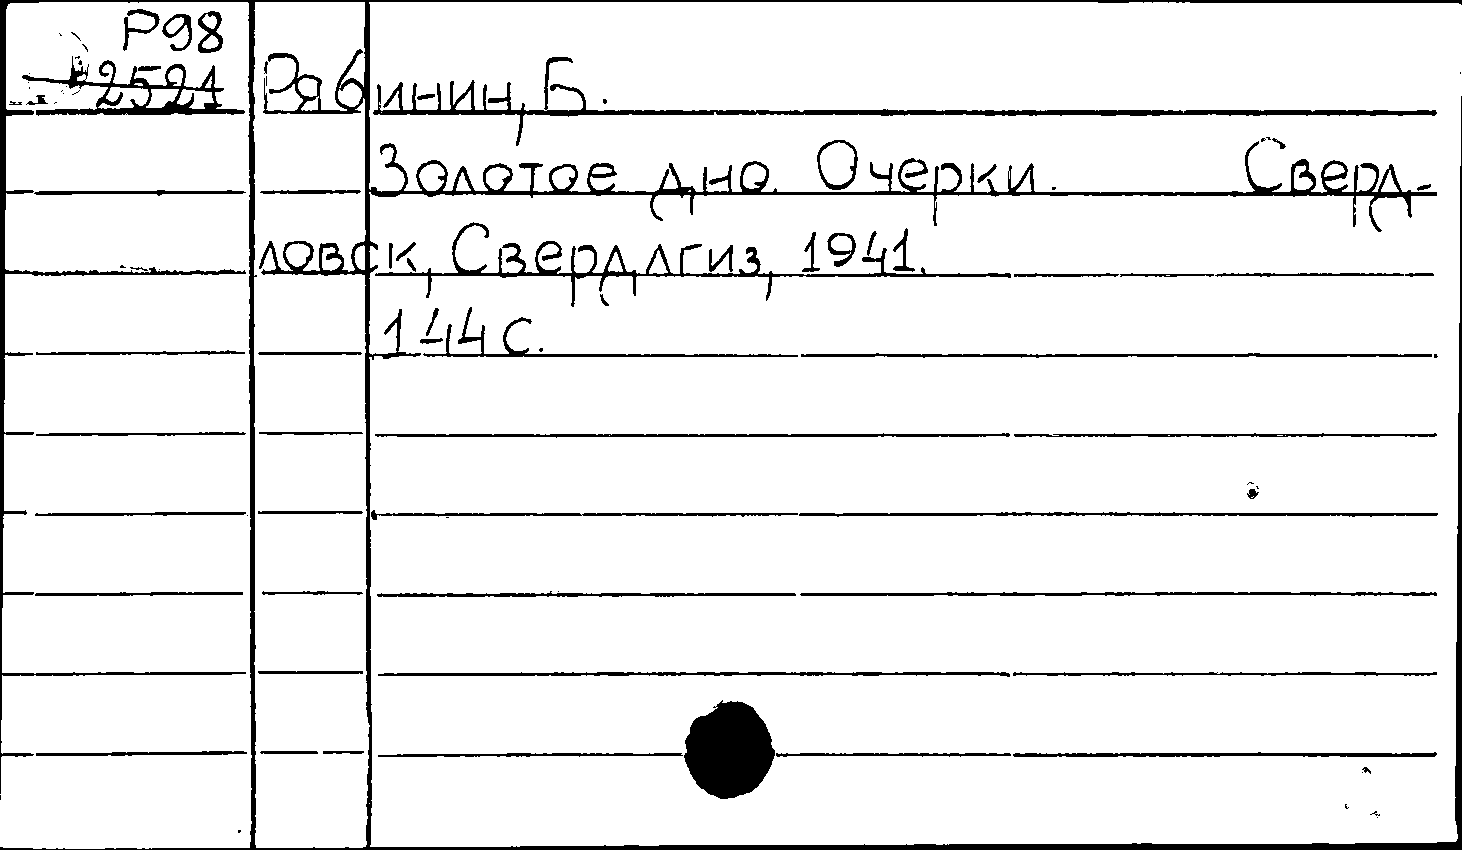 Р98
2521
Рябинин, Б.
Золотое дно. Очерки. Сверд-
ловск, Свердлгиз, 1941.
144 с.